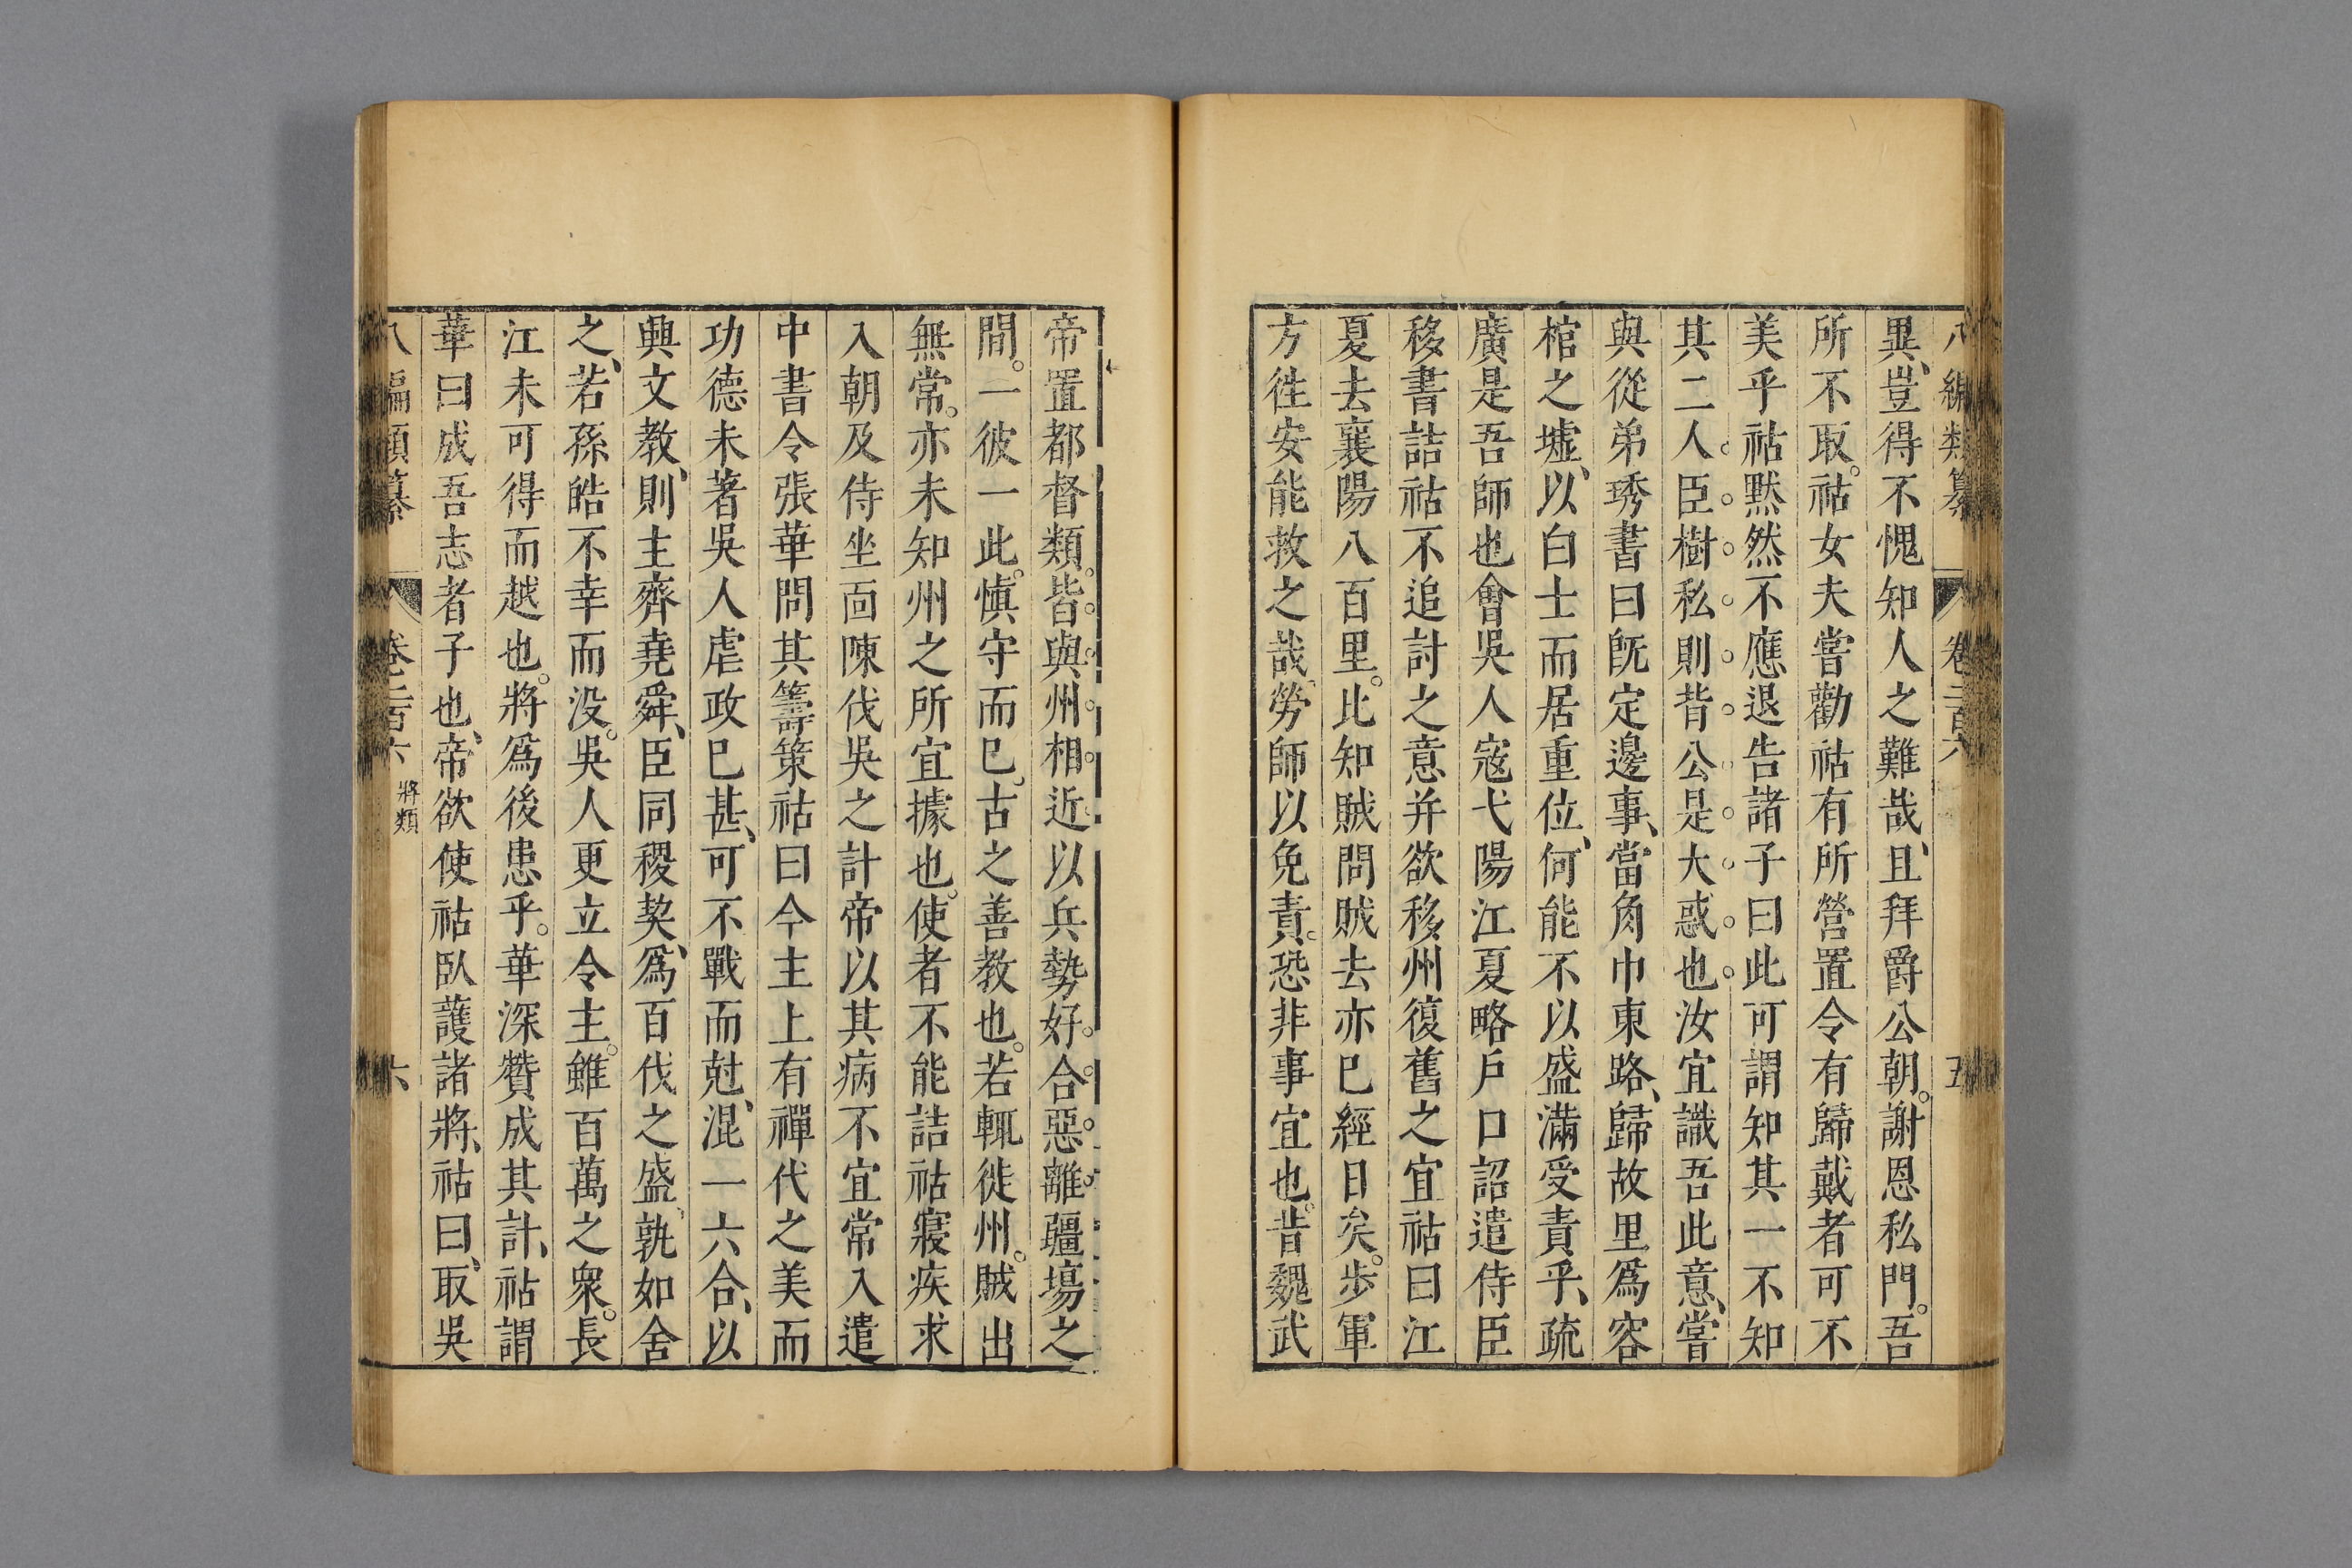 八編類纂 卷二百六 五
異、豈得不愧知人之難哉、且拜爵公朝。謝恩私門。吾
所不取。祜女夫嘗勸祜有所營置令有歸戴者可不
美乎祜默然不應退告諸子曰此可謂知其一不知
其二人臣樹私則背公是大惑也汝宜識吾此意、嘗
與從弟琇書曰既定邊事、當角巾東路、歸故里爲容
棺之墟、以白士而居重位、何能不以盛滿受責乎、疏
廣是吾師也會吳人寇弋陽江夏略戶口詔遣侍臣
移書詰祜不追討之意并欲移州復舊之宜祜曰江
夏去襄陽八百里。比知賊問賊去亦已經日矣。步軍
方徃安能救之哉、勞師以免責。恐非事宜也。昔魏武
帝置都督類。皆與州相近以兵勢好合惡離疆埸之
間。一彼一此。愼守而已。古之善教也。若輒徙州。賊出
無常。亦未知州之所宜據也。使者不能詰祜寢疾求
入朝及侍坐面陳伐吳之計帝以其病不宜常入遣
中書令張華問其籌策祜曰今主上有禪代之美而
功德未著吳人虐政已甚、可不戰而尅、混一六合、以
興文教、則主齊堯舜、臣同稷契、爲百伐之盛、孰如舍
之、若孫皓不幸而没。吳人更立令主。雖百萬之衆。長
江未可得而越也。將爲後患乎。華深贊成其計、祜謂
華曰成吾志者子也、帝欲使祜臥護諸將、祜曰、取吳
八編類纂 卷二百六 將類 六